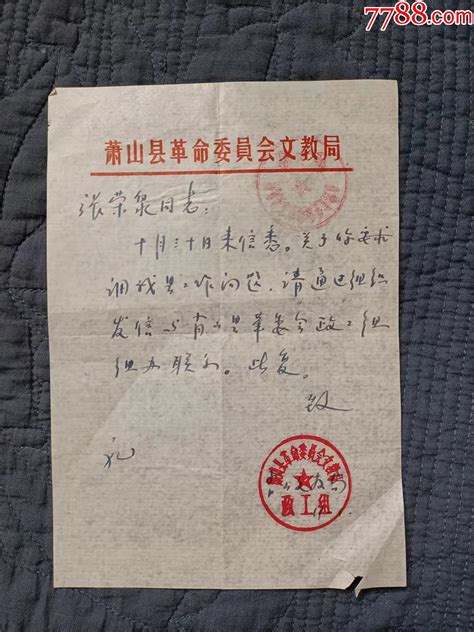 7788.com
萧山县革命委員会文教局
张荣泉同志：
十月三十日来信悉。关于你要求
调我县工作问题，请通过组织
发信与萧山县革委会政工组
组办联系。此复。
致
礼
萧山县革命委員会文教局
政工组